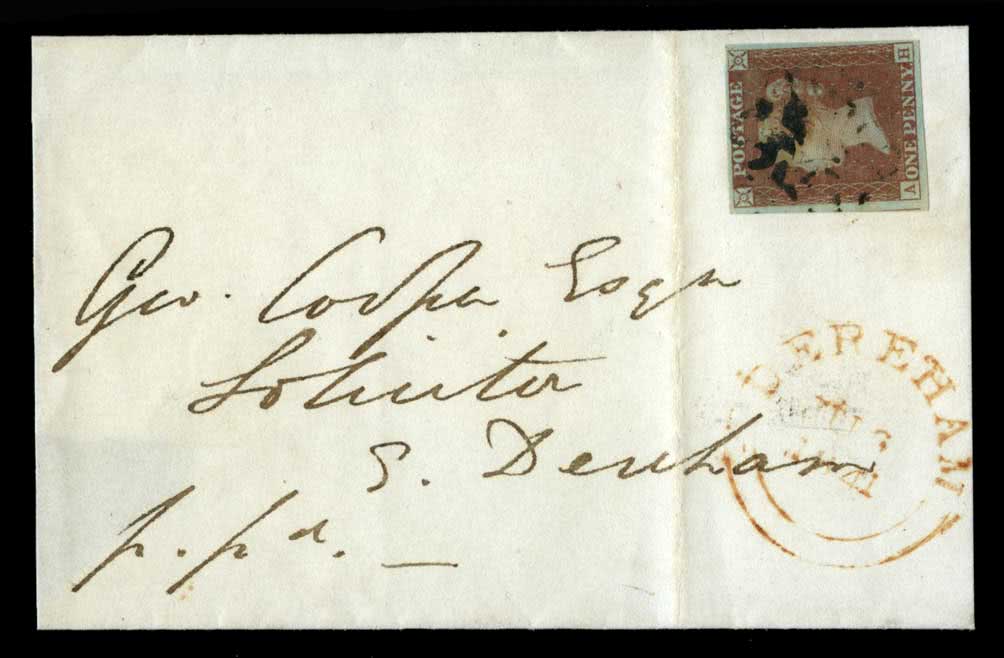 POSTAGE
ONE PENNY
A H
Geo. Cooper Esqr
Solicitor
E. Dereham
p. pd. —
DEREHAM